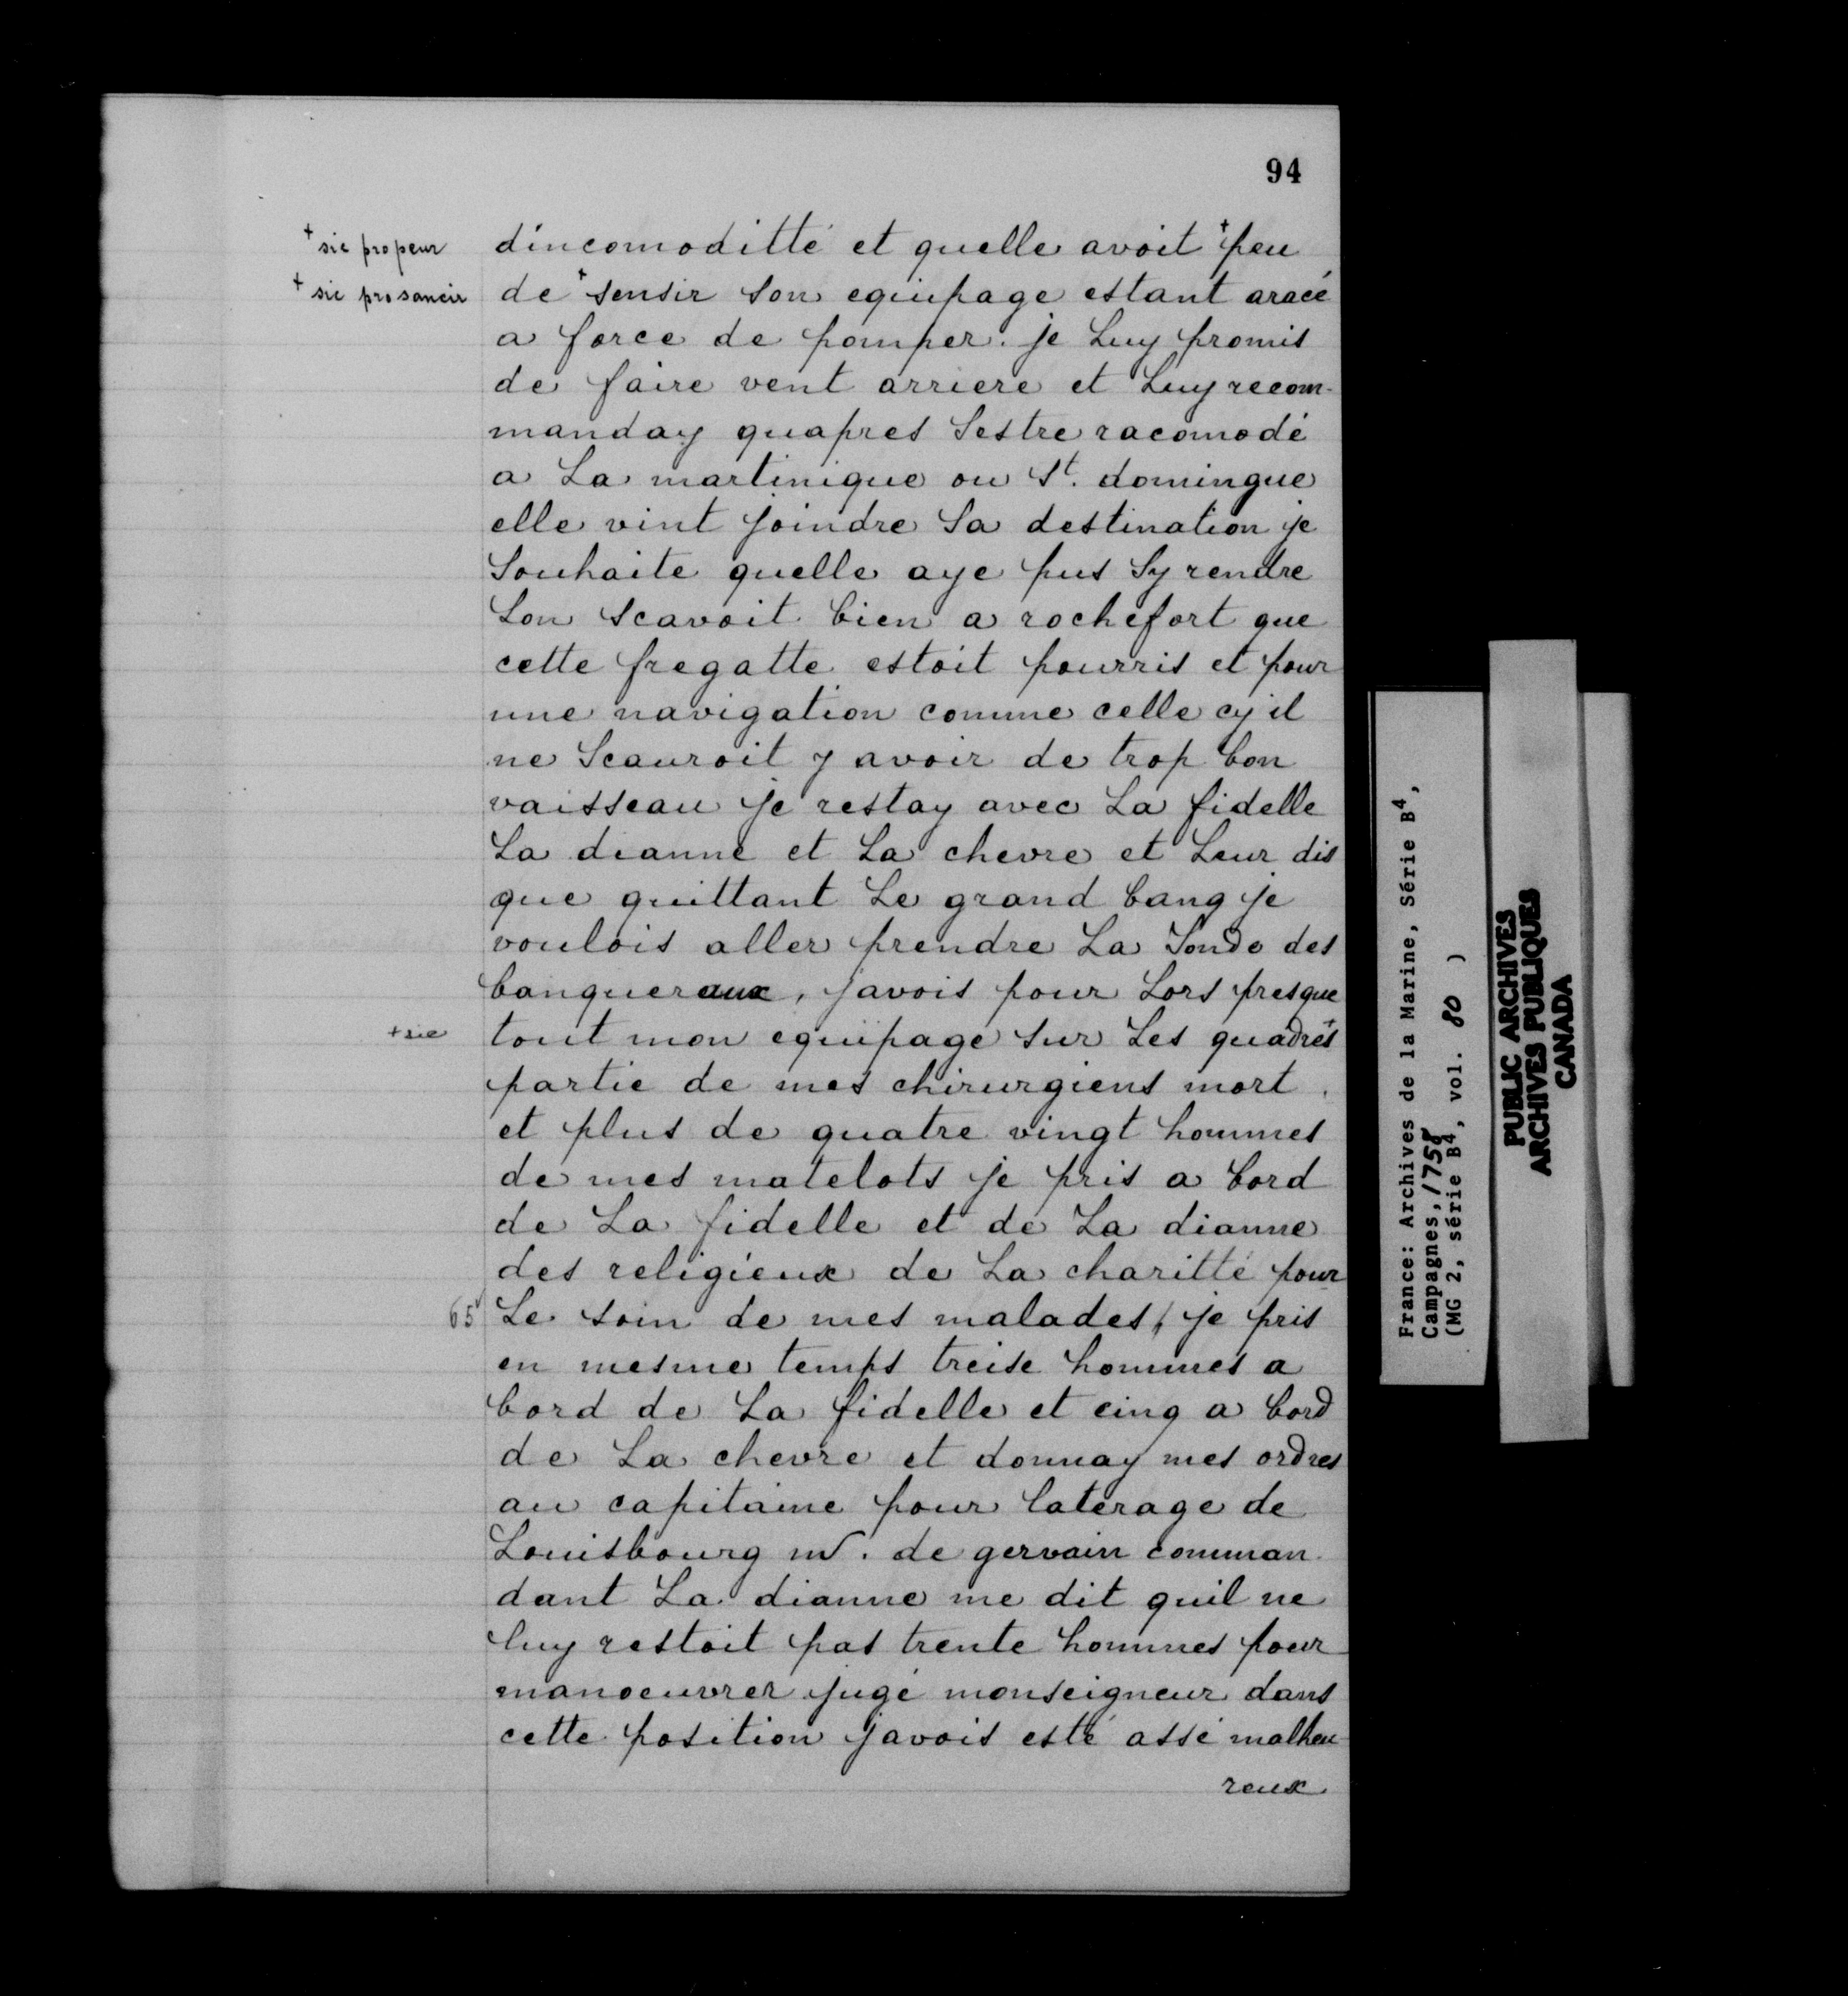 94
+ sic pro peur
+ sic pro sancir
dincomoditté et quelle avoit + peu
de + sensir son equipage estant aracé
a force de pomper. je Luy promis
de faire vent arriere et Luy recom-
manday quapres Sestre racomodé
a La martinique ou St. domingue
elle vint joindre Sa destination je
Souhaite quelle aye pus Sy rendre
Lon scavoit bien a rochefort que
cette fregatte estoit pourris et pour
une navigation comme celle cy il
ne Scauroit y avoir de trop bon
vaisseau je restay avec La fidelle
La dianne et La chevre et Leur dis
que quittant Le grand bang je
voulois aller prendre La Sonde des
banqueraux, javois pour Lors presque
+ sic
tout mon equipage sur Les quadrés +
partie de mes chirurgiens mort
et plus de quatre vingt hommes
de mes matelots je pris a bord
de La fidelle et de La dianne
des religieux de La charitté pour
65v
Le soin de mes malades, je pris
en mesme temps treise hommes a
bord de La fidelle et cinq a bord
de La chevre et donnay mes ordres
au capitaine pour laterage de
Louisbourg mr. de gervain comman-
dant La dianne me dit quil ne
luy restoit pas trente hommes pour
manoeuvrer jugé monseigneur dans
cette position javois esté assé malheu
reux
France: Archives de la Marine, Série B4,
Campagnes, 1758
(MG 2, série B4, vol. 80 )
PUBLIC ARCHIVES
ARCHIVES PUBLIQUES
CANADA